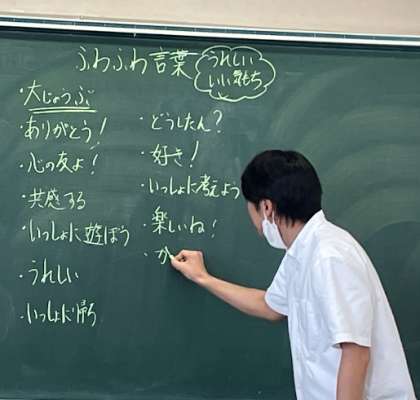 ふわふわ言葉
うれしい
いい気もち
・大じょうぶ
・ありがとう!
・心の友よ!
・共感する
・いっしょに遊ぼう
・うれしい
・いっしょに帰ろ
・どうしたん?
・好き!
・いっしょに考えよう
・楽しいね!
・か